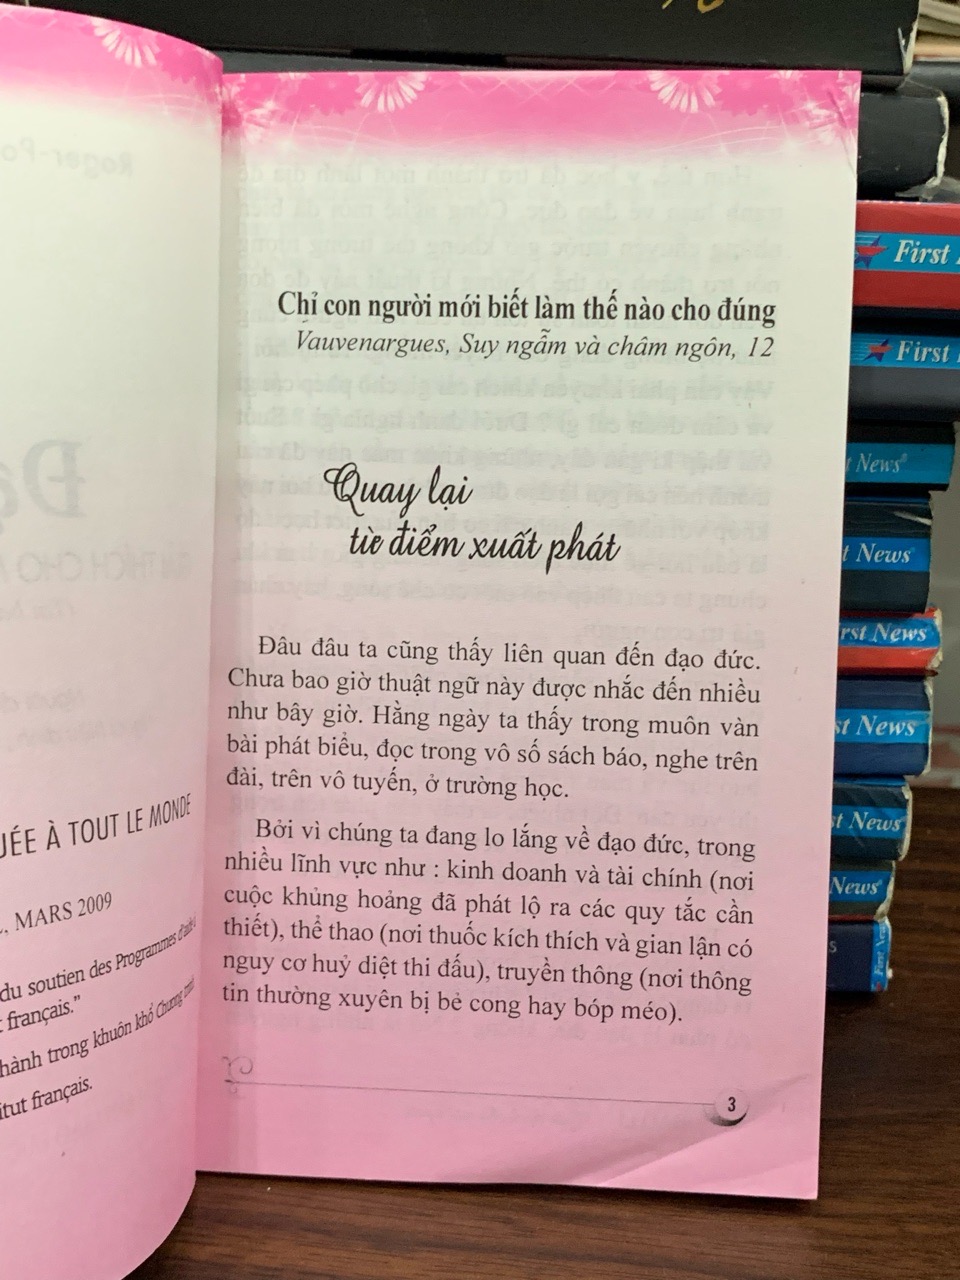 UÉE À TOUT LE MONDE
MARS 2009
du soutien des Programmes d'aide
français.”
hành trong khuôn khổ Chương
itut français.
Chỉ con người mới biết làm thế nào cho đúng
Vauvenargues, Suy ngẫm và châm ngôn, 12
Quay lại
từ điểm xuất phát
Đâu đâu ta cũng thấy liên quan đến đạo đức.
Chưa bao giờ thuật ngữ này được nhắc đến nhiều
như bây giờ. Hằng ngày ta thấy trong muôn vàn
bài phát biểu, đọc trong vô số sách báo, nghe trên
đài, trên vô tuyến, ở trường học.
Bởi vì chúng ta đang lo lắng về đạo đức, trong
nhiều lĩnh vực như : kinh doanh và tài chính (nơi
cuộc khủng hoảng đã phát lộ ra các quy tắc cần
thiết), thể thao (nơi thuốc kích thích và gian lận có
nguy cơ huỷ diệt thi đấu), truyền thông (nơi thông
tin thường xuyên bị bẻ cong hay bóp méo).
3
First
First
t News
t News
rst News
st News
st News
News
First News